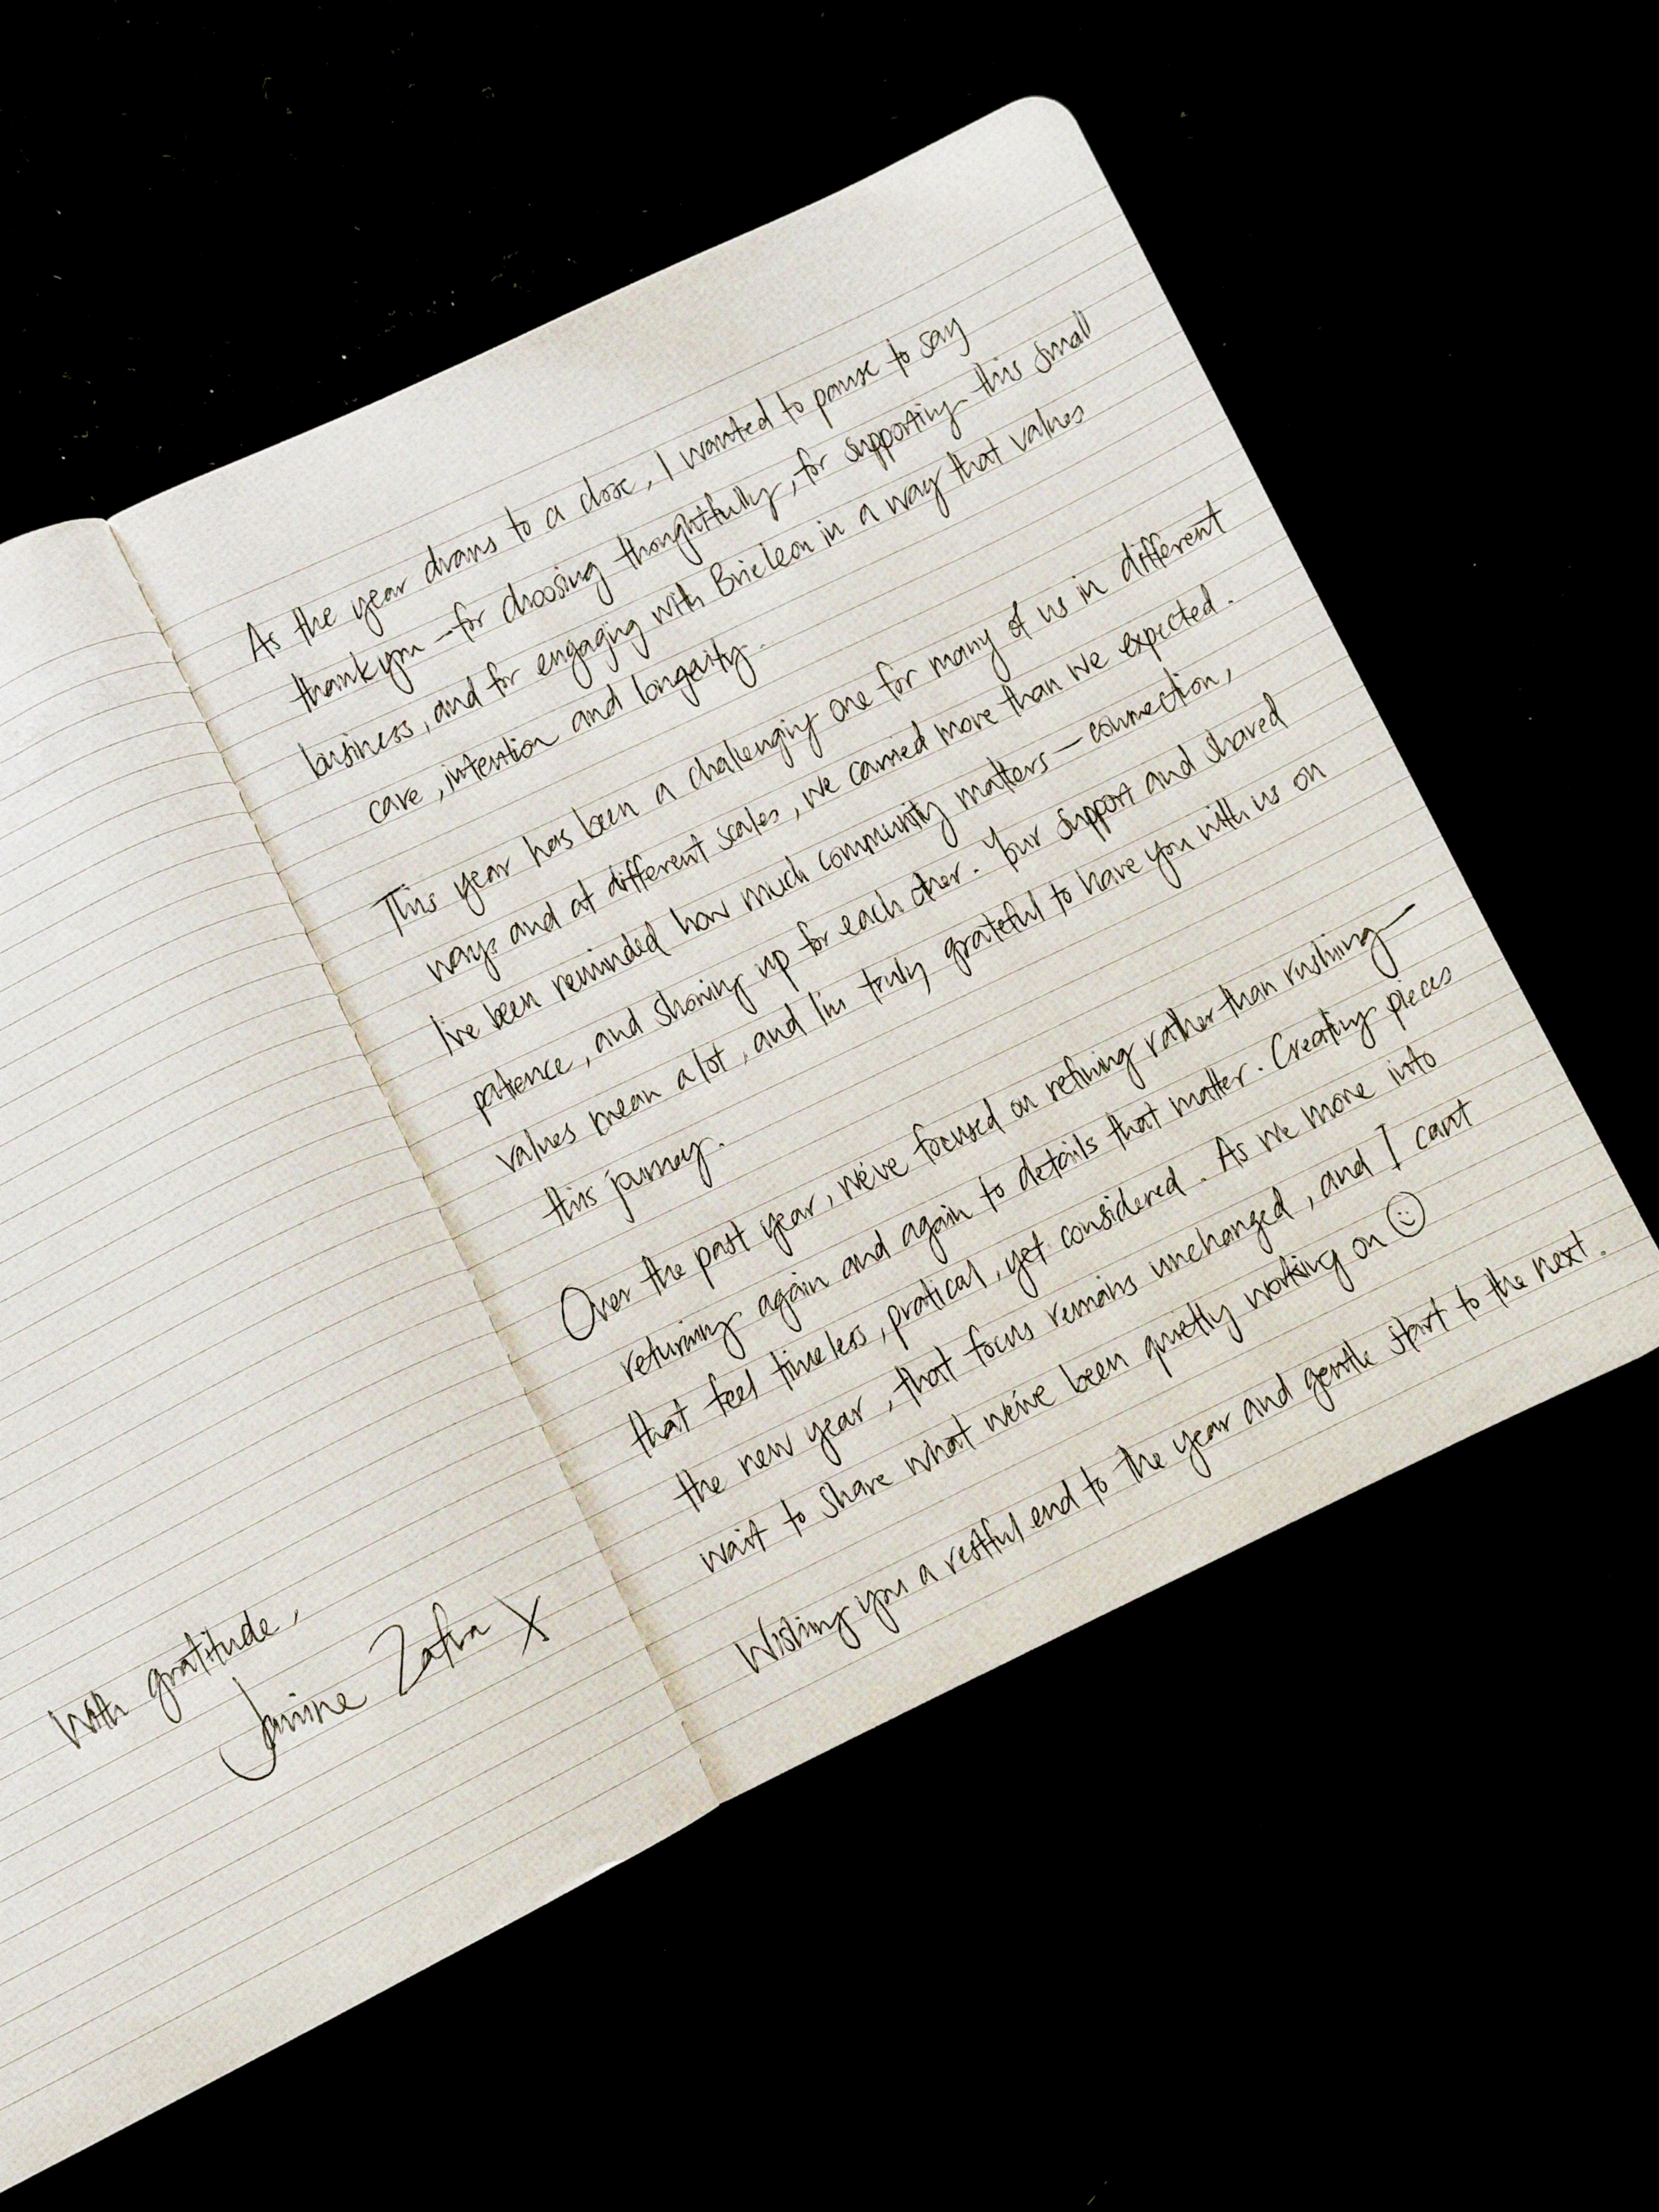 As the year draws to a close, I wanted to pause to say
thank you – for choosing thoughtfully, for supporting this small
business, and for engaging with Brieleon in a way that values
care, intention and longevity.
This year has been a challenging one for many of us in different
ways and at different scales, we carried more than we expected.
I've been reminded how much community matters – connection,
patience, and showing up for each other. Your support and shared
values mean a lot, and I'm truly grateful to have you with us on
this journey.
Over the past year, we've focused on refining rather than rushing –
returning again and again to details that matter. Creating pieces
that feel timeless, pratical, yet considered. As we move into
the new year, that focus remains unchanged, and I can't
wait to share what we've been quietly working on ☺
Wishing you a restful end to the year and gentle start to the next.
With gratitude,
Janine Zafra X